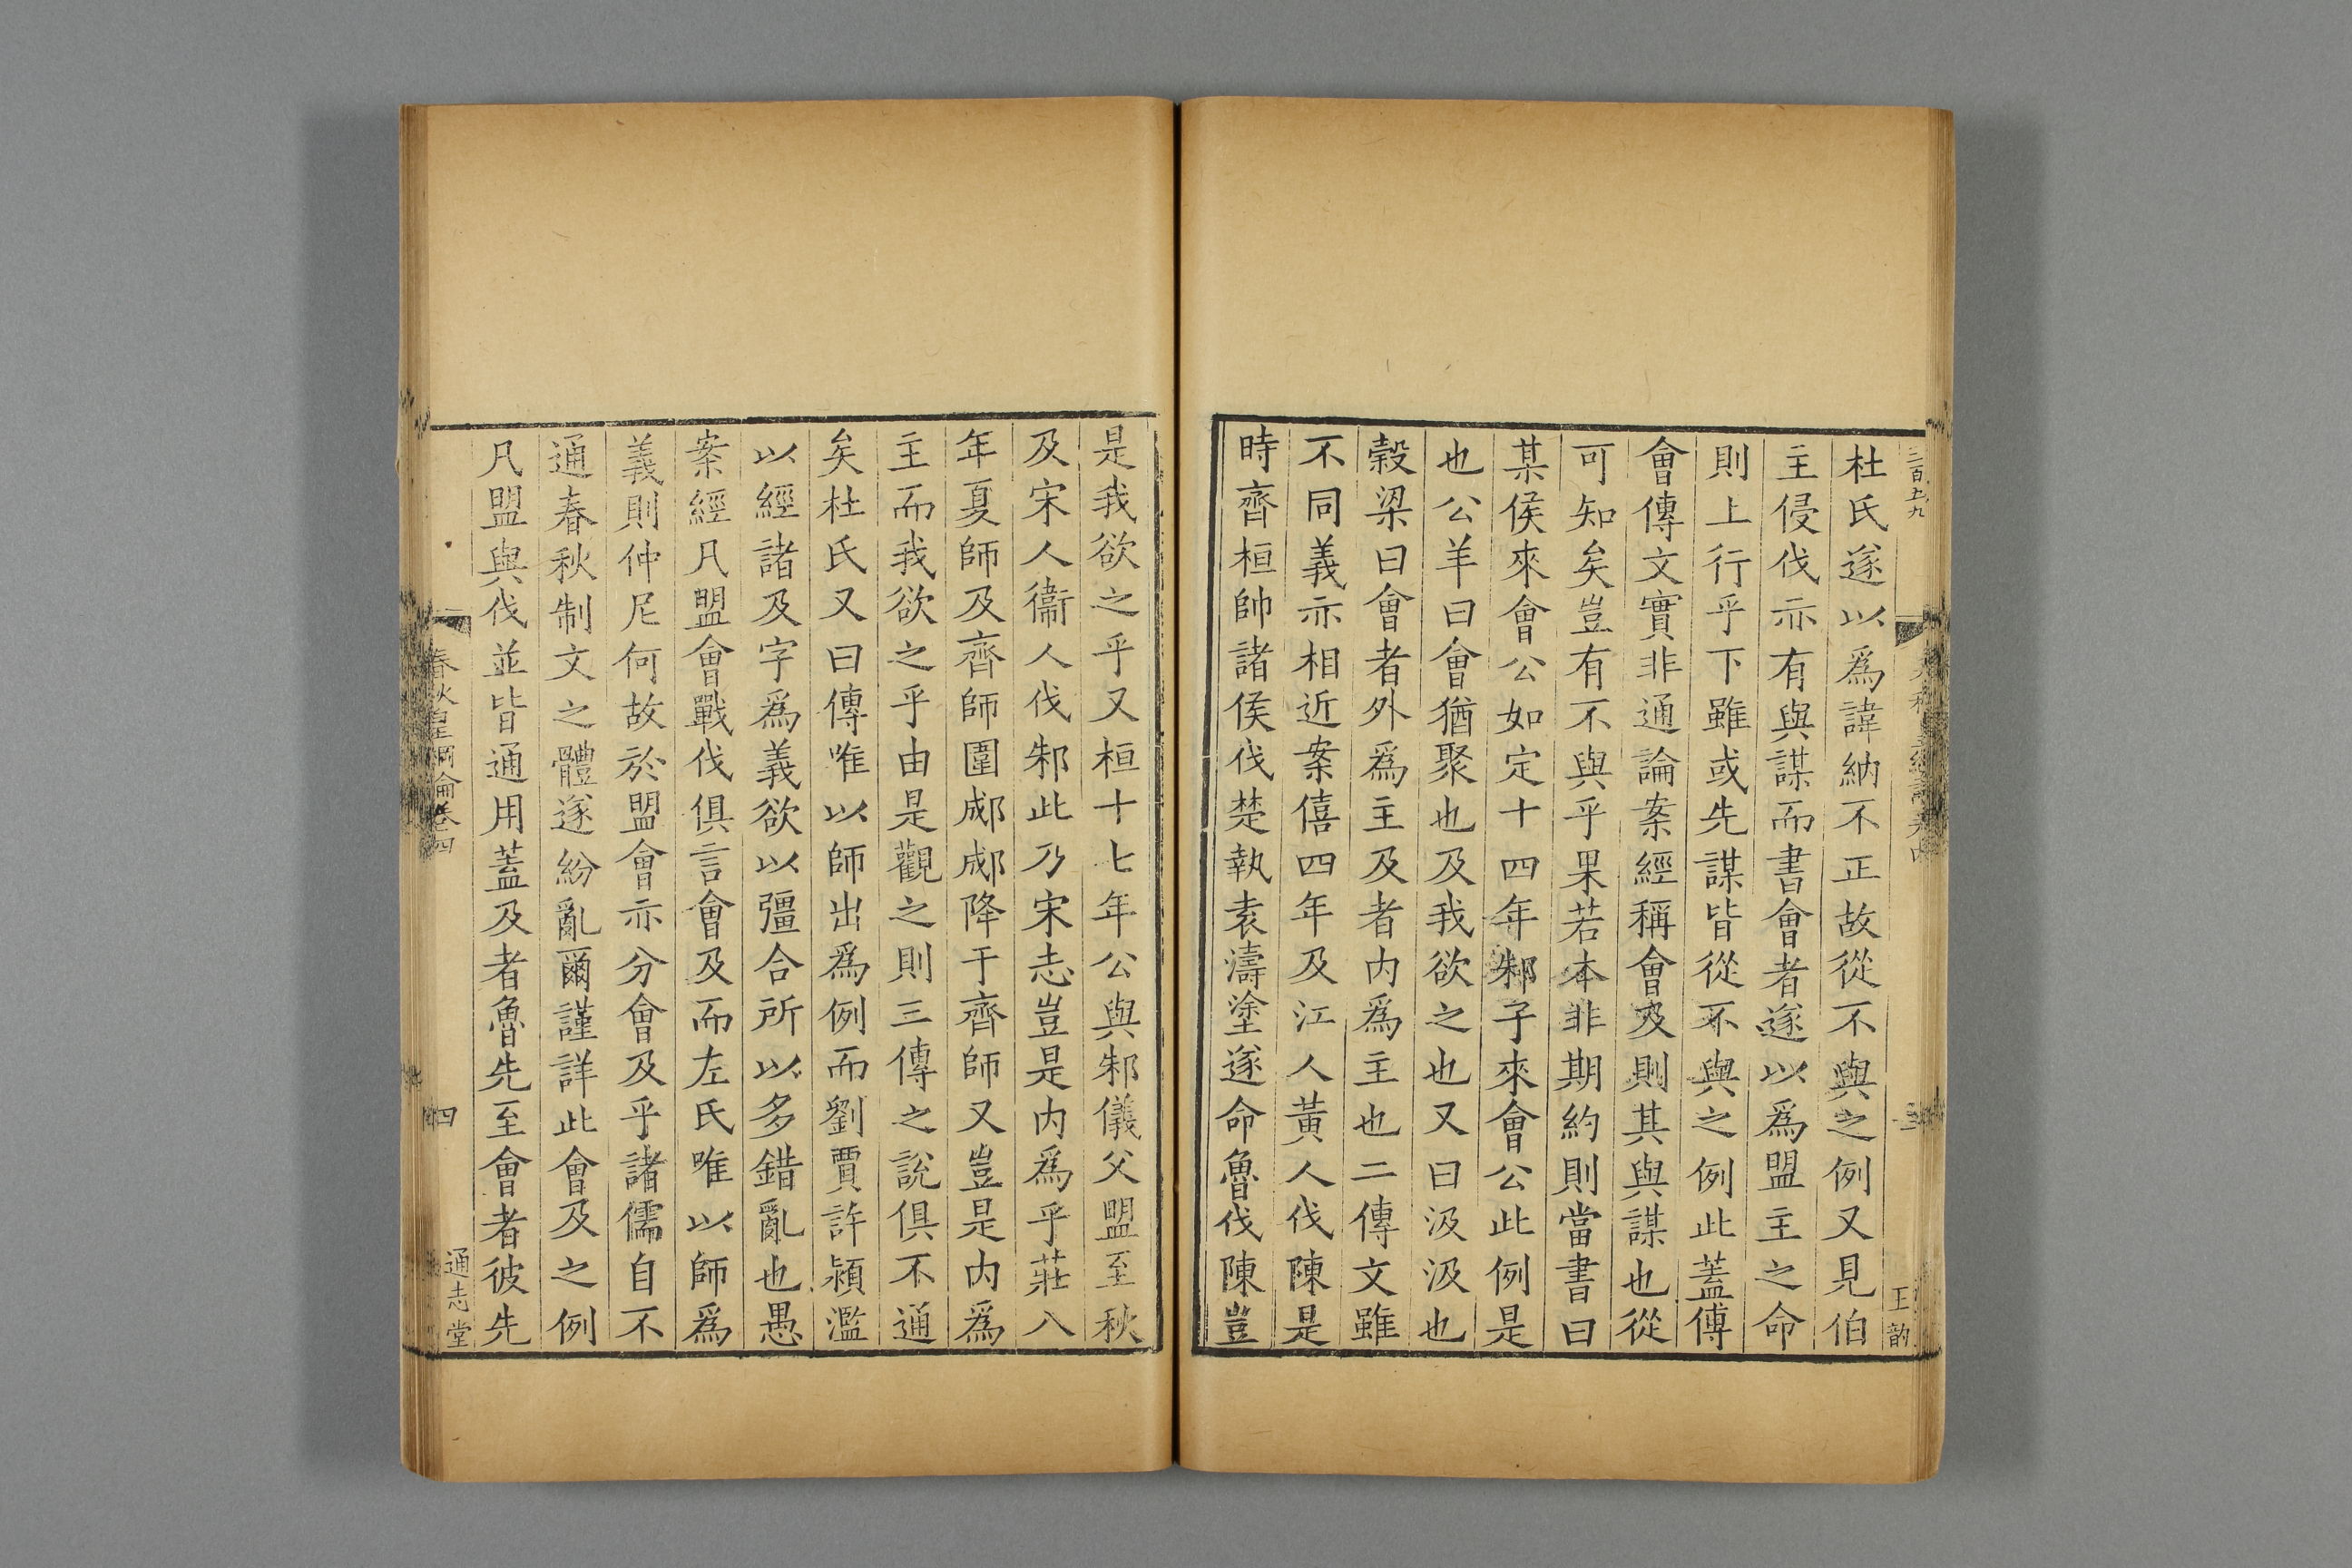 三百五九
杜氏遂以爲諱納不正故從不與之例又見伯
主侵伐亦有與謀而書會者遂以爲盟主之命
則上行乎下雖或先謀皆從不與之例此蓋傅
會傳文實非通論案經稱會及則其與謀也從
可知矣豈有不與乎果若本非期約則當書曰
某侯來會公如定十四年邾子來會公此例是
也公羊曰會猶聚也及我欲之也又曰汲汲也
榖梁曰會者外爲主及者内爲主也二傳文雖
不同義亦相近案僖四年及江人黃人伐陳是
時齊桓帥諸侯伐楚執袁濤塗遂命魯伐陳豈
王
是我欲之乎又桓十七年公與邾儀父盟至秋
及宋人衞人伐邾此乃宋志豈是内爲乎莊八
年夏師及齊師圍郕郕降于齊師又豈是内爲
主而我欲之乎由是觀之則三傳之說俱不通
矣杜氏又曰傳唯以師出爲例而劉賈許潁濫
以經諸及字爲義欲以彊合所以多錯亂也愚
案經凡盟會戰伐俱言會及而左氏唯以師爲
義則仲尼何故於盟會亦分會及乎諸儒自不
通春秋制文之體遂紛亂爾謹詳此會及之例
凡盟與伐並皆通用蓋及者魯先至會者彼先
春秋皇綱論卷四
四
通志堂